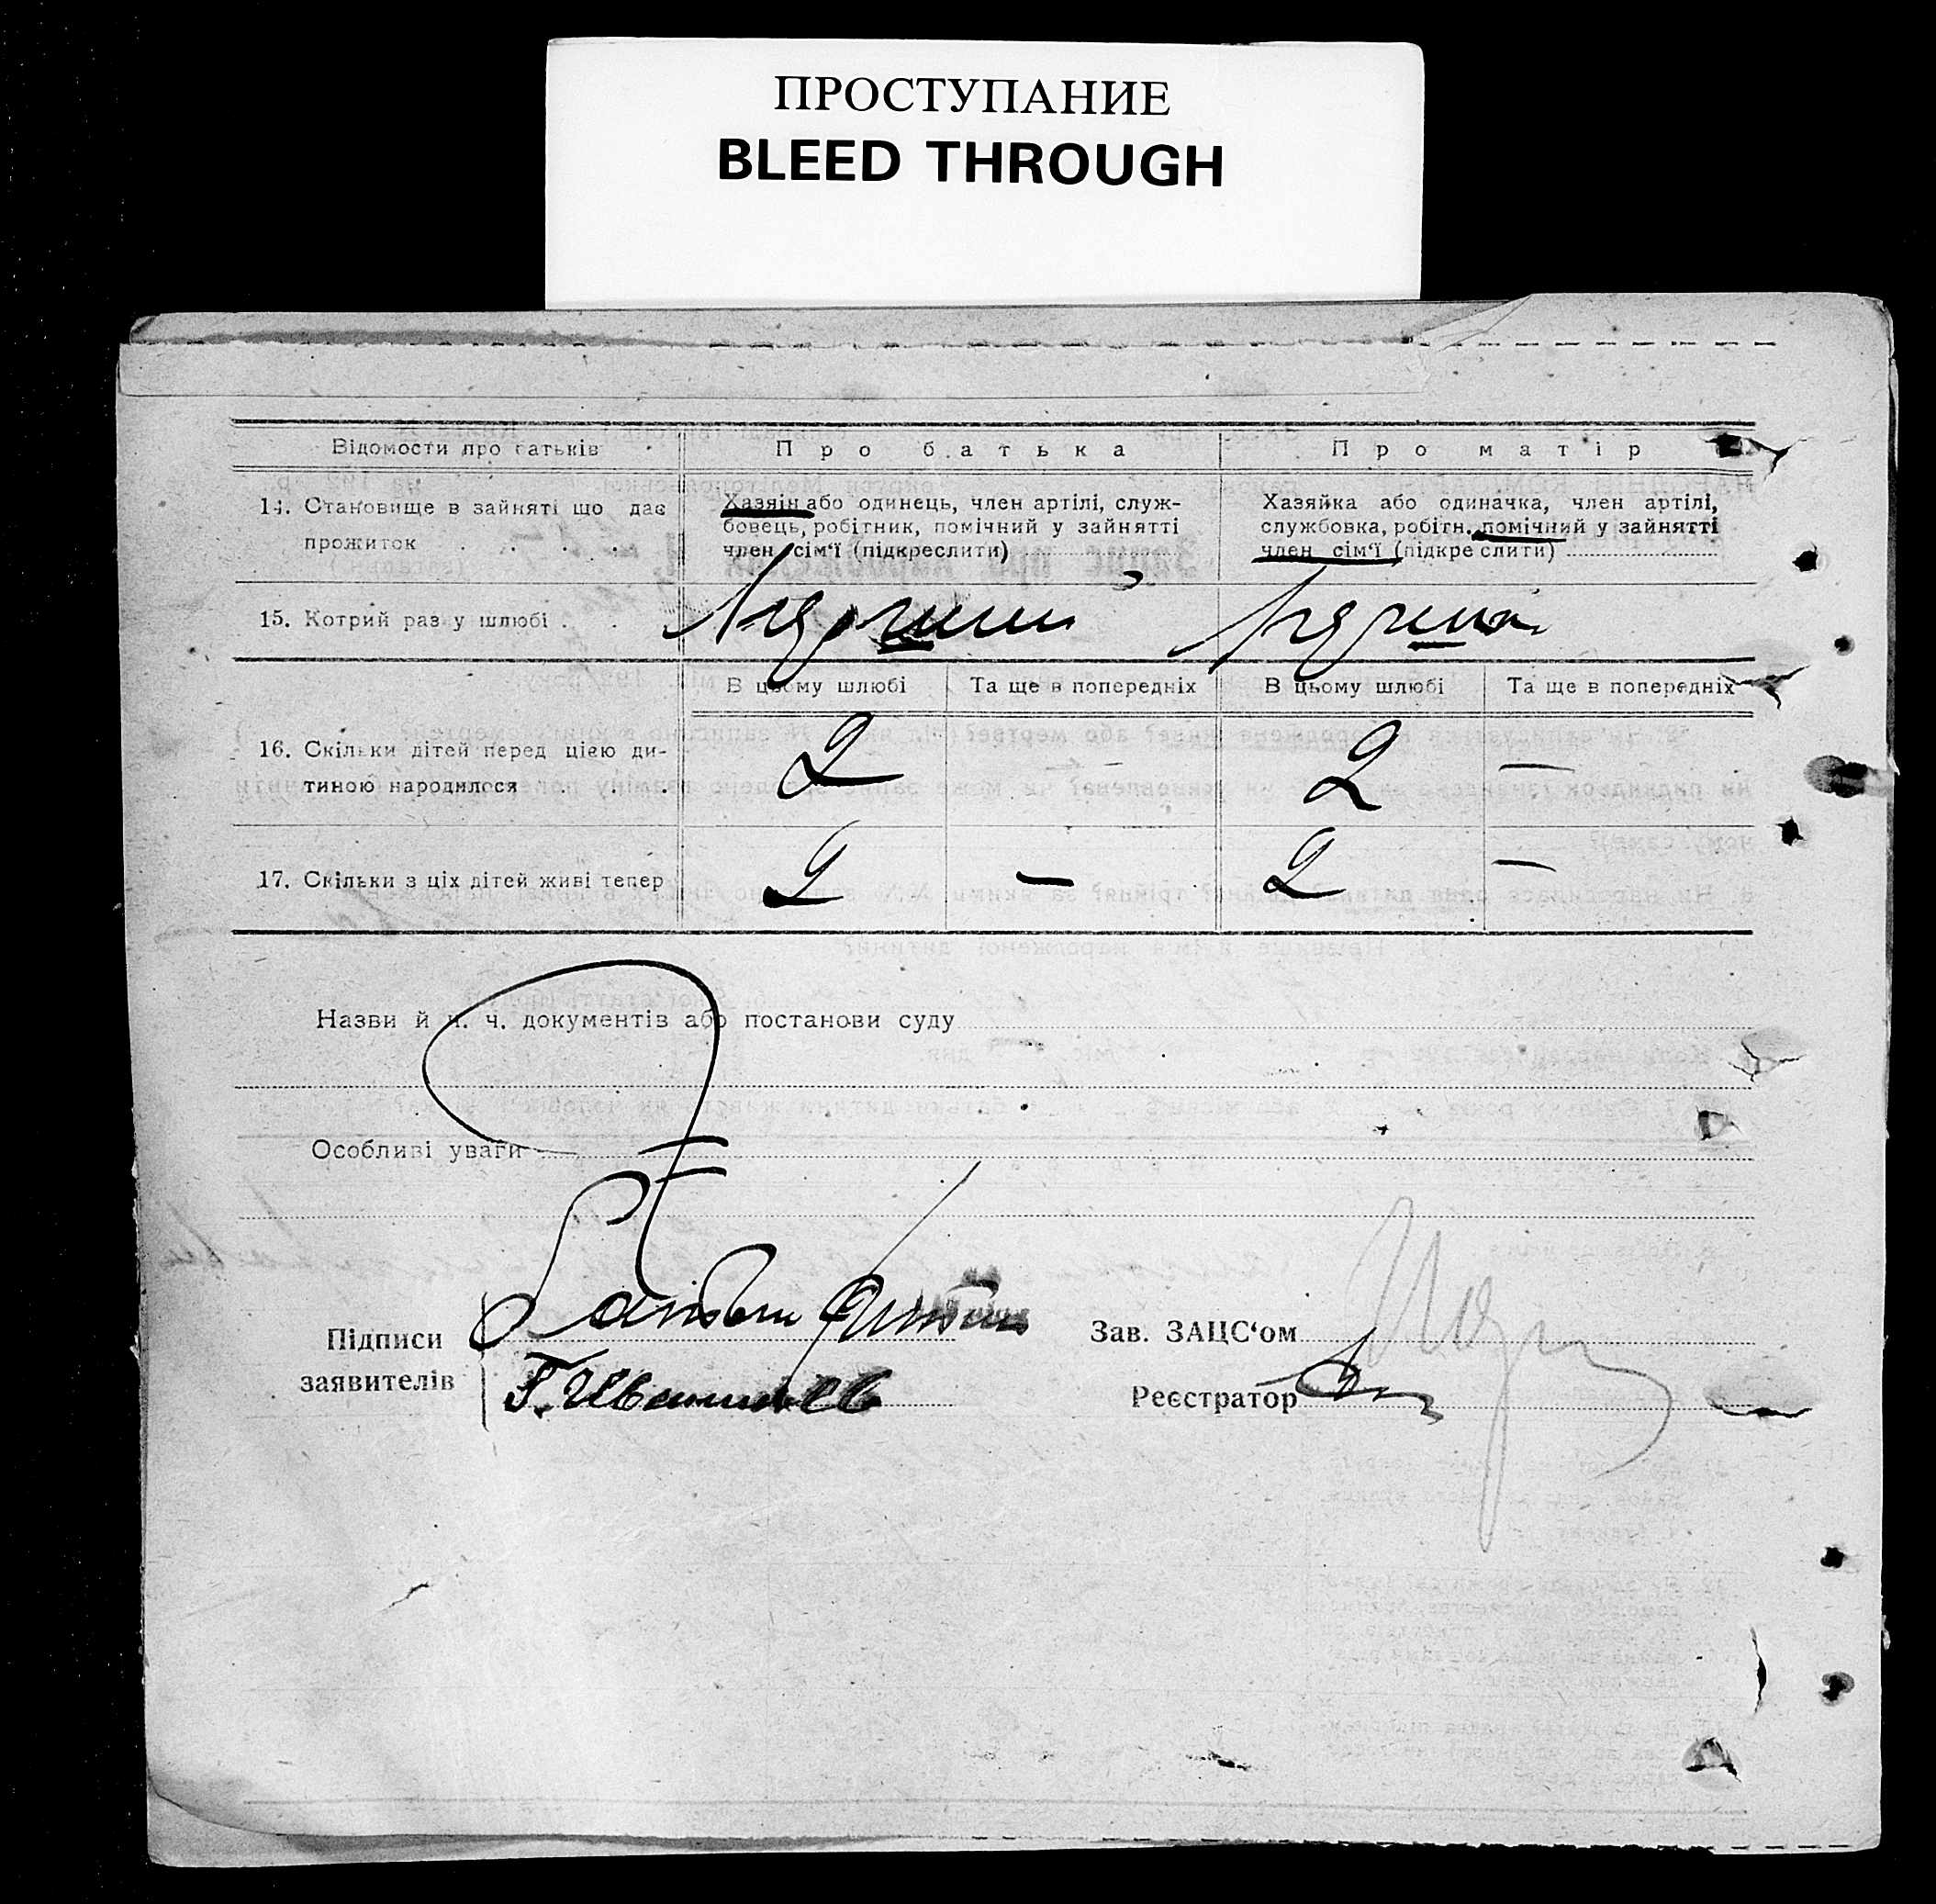 ПРОСТУПАНИЕ
BLEED THROUGH
Відомости про батьків
Про батька
Про матір
14. Становище в зайняті що дає
прожиток . . . .
Хазяін або одинець, член артілі, служ-
бовець, робітник, помічний у зайнятті
член сім'ї (підкреслити)
Хазяйка або одиначка, член артілі,
службовка, робітн. помічний у зайнятті
член сім'ї (підкреслити)
15. Котрий раз у шлюбі . .
В цьому шлюбі
Та ще в попередніх
В цьому шлюбі
Та ще в попередніх
16. Скільки дітей перед цією ди-
тиною народилося . . .
2
2 —
17. Скільки з ціх дітей живі тепер
2 — 2 —
Назви й ч. ч. документів або постанови суду
Особливі уваги
Підписи
заявителів
Зав. ЗАЦС'ом
Реєстратор